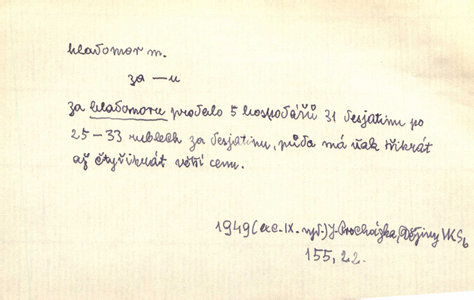 hladomor m.
za —u
za hladomoru prodalo 5 hospodářů 31 desjatinu po
25–33 rublech za desjatinu, půda má však třikrát
až čtyřikrát větší cenu.
1949 (exc. IX. vyd.) J. Procházka, Dějiny VKSb
155, 22.